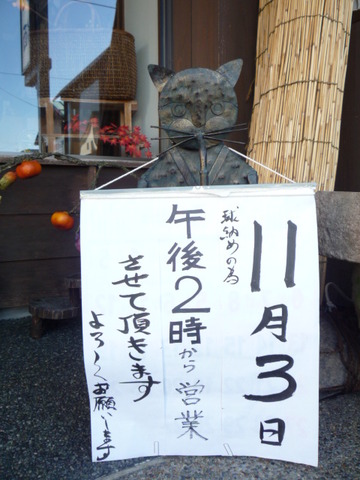 11月3日
球納めの為
午後2時から営業
させて頂きます
よろしくお願いします